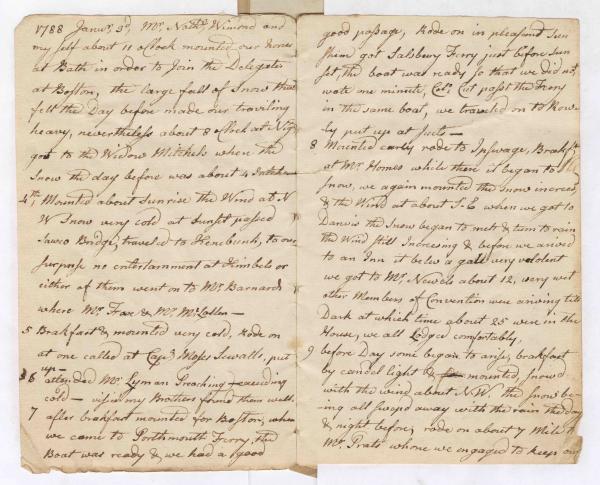 1788 Janry 3d, Mr Nathl Wimond and
my self about 11 oClock mounted our horses
at Bath in order to Join the Delegates
at Boston, the large fall of Snow that
fell the Day before made our traviling
heavy, nevertheless about 8 oClock at Nig
got to the Widow Mitchels when the
Snow the day before was about 4 Inches
4th, Mounted about Sunrise the Wind at N
W Snow very cold at Sunset passed
Sawco Bridge, traveled to Kenebunk, to our
Surprise no entertainment at Kimbels or
either of them went on to Mr Barnards
where Mr Fox & Mr McLellen
5 Brakfast & mounted very cold, Rode on
at one called at Capt Moses Sewalls, put
up
6 attended Mr Lyman Preaching exceeding
cold - visit my Brothers found them well
7 after brakfast mounted for Boston, when
we came to Porthmouth Ferry, the
Boat was ready & we had a good
good passage, Rode on in pleasant Sun
Shine, got Salsbury Ferry just before Sun
set, the boat was ready so that we did not
wate one minute, Coll Cut past the Ferry
in the same boat, we traveled on to Row=
ly put up at
8 Mounted early rode to Ipswage, Brakfst
at Mr Homes while there it began to
Snow, we again mounted the Snow incresd,
& the Wind at about S-E when we got to
Danvis the Snow began to melt & turn to rain
the Wind Still Incresing & before we arived
to an Inn it belw a gale very velolent
we got to Mr Newels about 12, very wet
other Members of Convention were ariving till
Dark at which time about 25 were in the
House, we all Lodged comfortably,
9 before Day some began to arise, brakfast
by candel light & mounted, snow'd
with the wind about N.W. the snow be-
ing all sweped away with the rain the day
& night before, rode on about 7 Miles to
Mr Prats whome we engaged to keep our